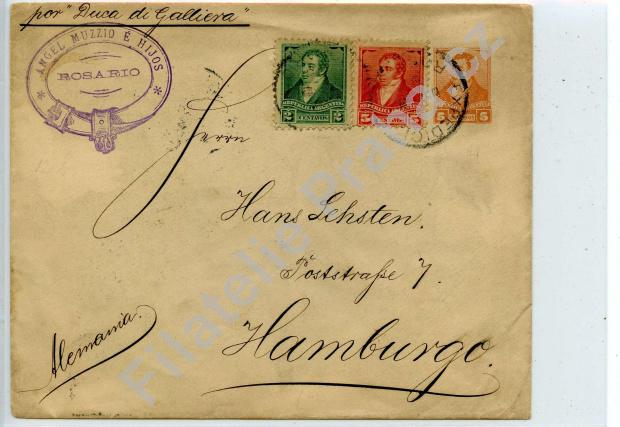 por "Duca di Galliera"
ANGEL MUZZIO É HIJOS
ROSARIO
REPUBLICA ARGENTINA
2 CENTAVOS 2
REPUBLICA ARGENTINA
5 5
5 5
Herrn
Hans Lehsten.
Poststraße 7.
Hamburgo.
Alemania.
Filatelie Praha.cz